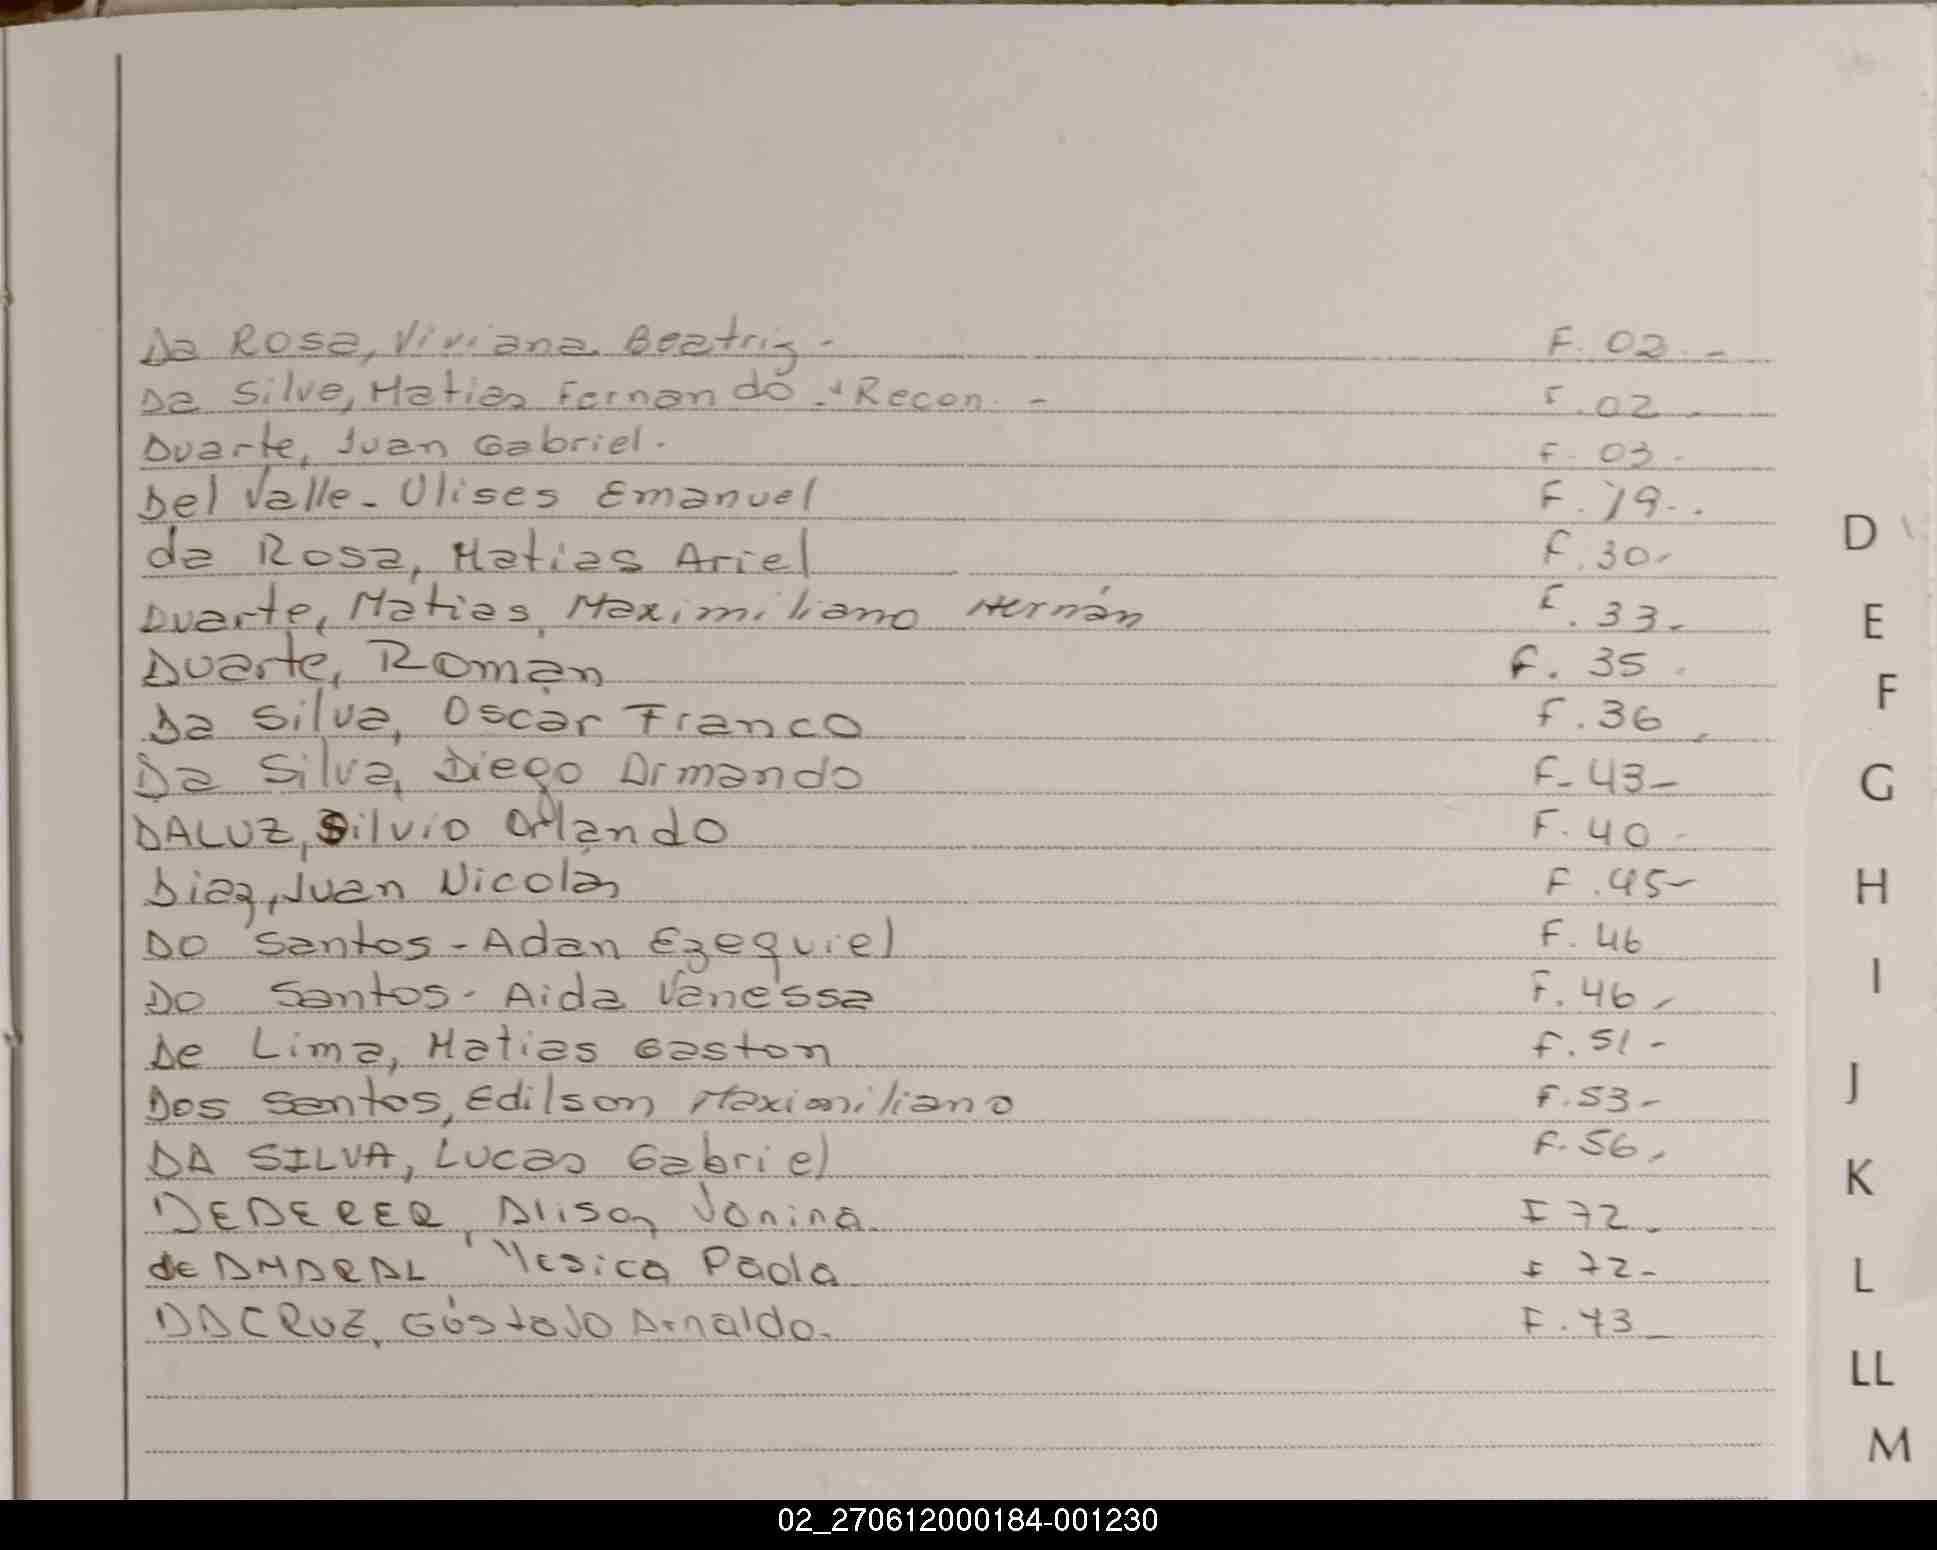 Da Rosa, Viviana Beatriz - F. 02 -
Da Silva, Matias Fernando - Recon - F. 02 -
Duarte, Juan Gabriel - F. 03 -
Del Valle - Ulises Emanuel F. 19 -
D
da Rosa, Matias Ariel F. 30 -
Duarte, Matias Maximiliano Hernán F. 33 -
E
Duarte, Roman F. 35
F
Da Silva, Oscar Franco F. 36
Da Silva, Diego Armando F - 43 -
G
DALUZ, Silvio Orlando F. 40 -
Diaz, Juan Nicolás F. 45 -
H
Do Santos - Adan Ezequiel F. 46
Do Santos - Aida Vanessa F. 46 -
I
De Lima, Matias Gaston F. 51 -
J
Dos Santos, Edilson Maximiliano F. 53 -
DA SILVA, Lucas Gabriel F. 56 -
K
DEDERER, Alison Jonina F 72 -
de AMARAL Yesica Paola F 72 -
L
DACRUZ, Gustavo Arnaldo. F. 73 -
LL
M
02_270612000184-001230